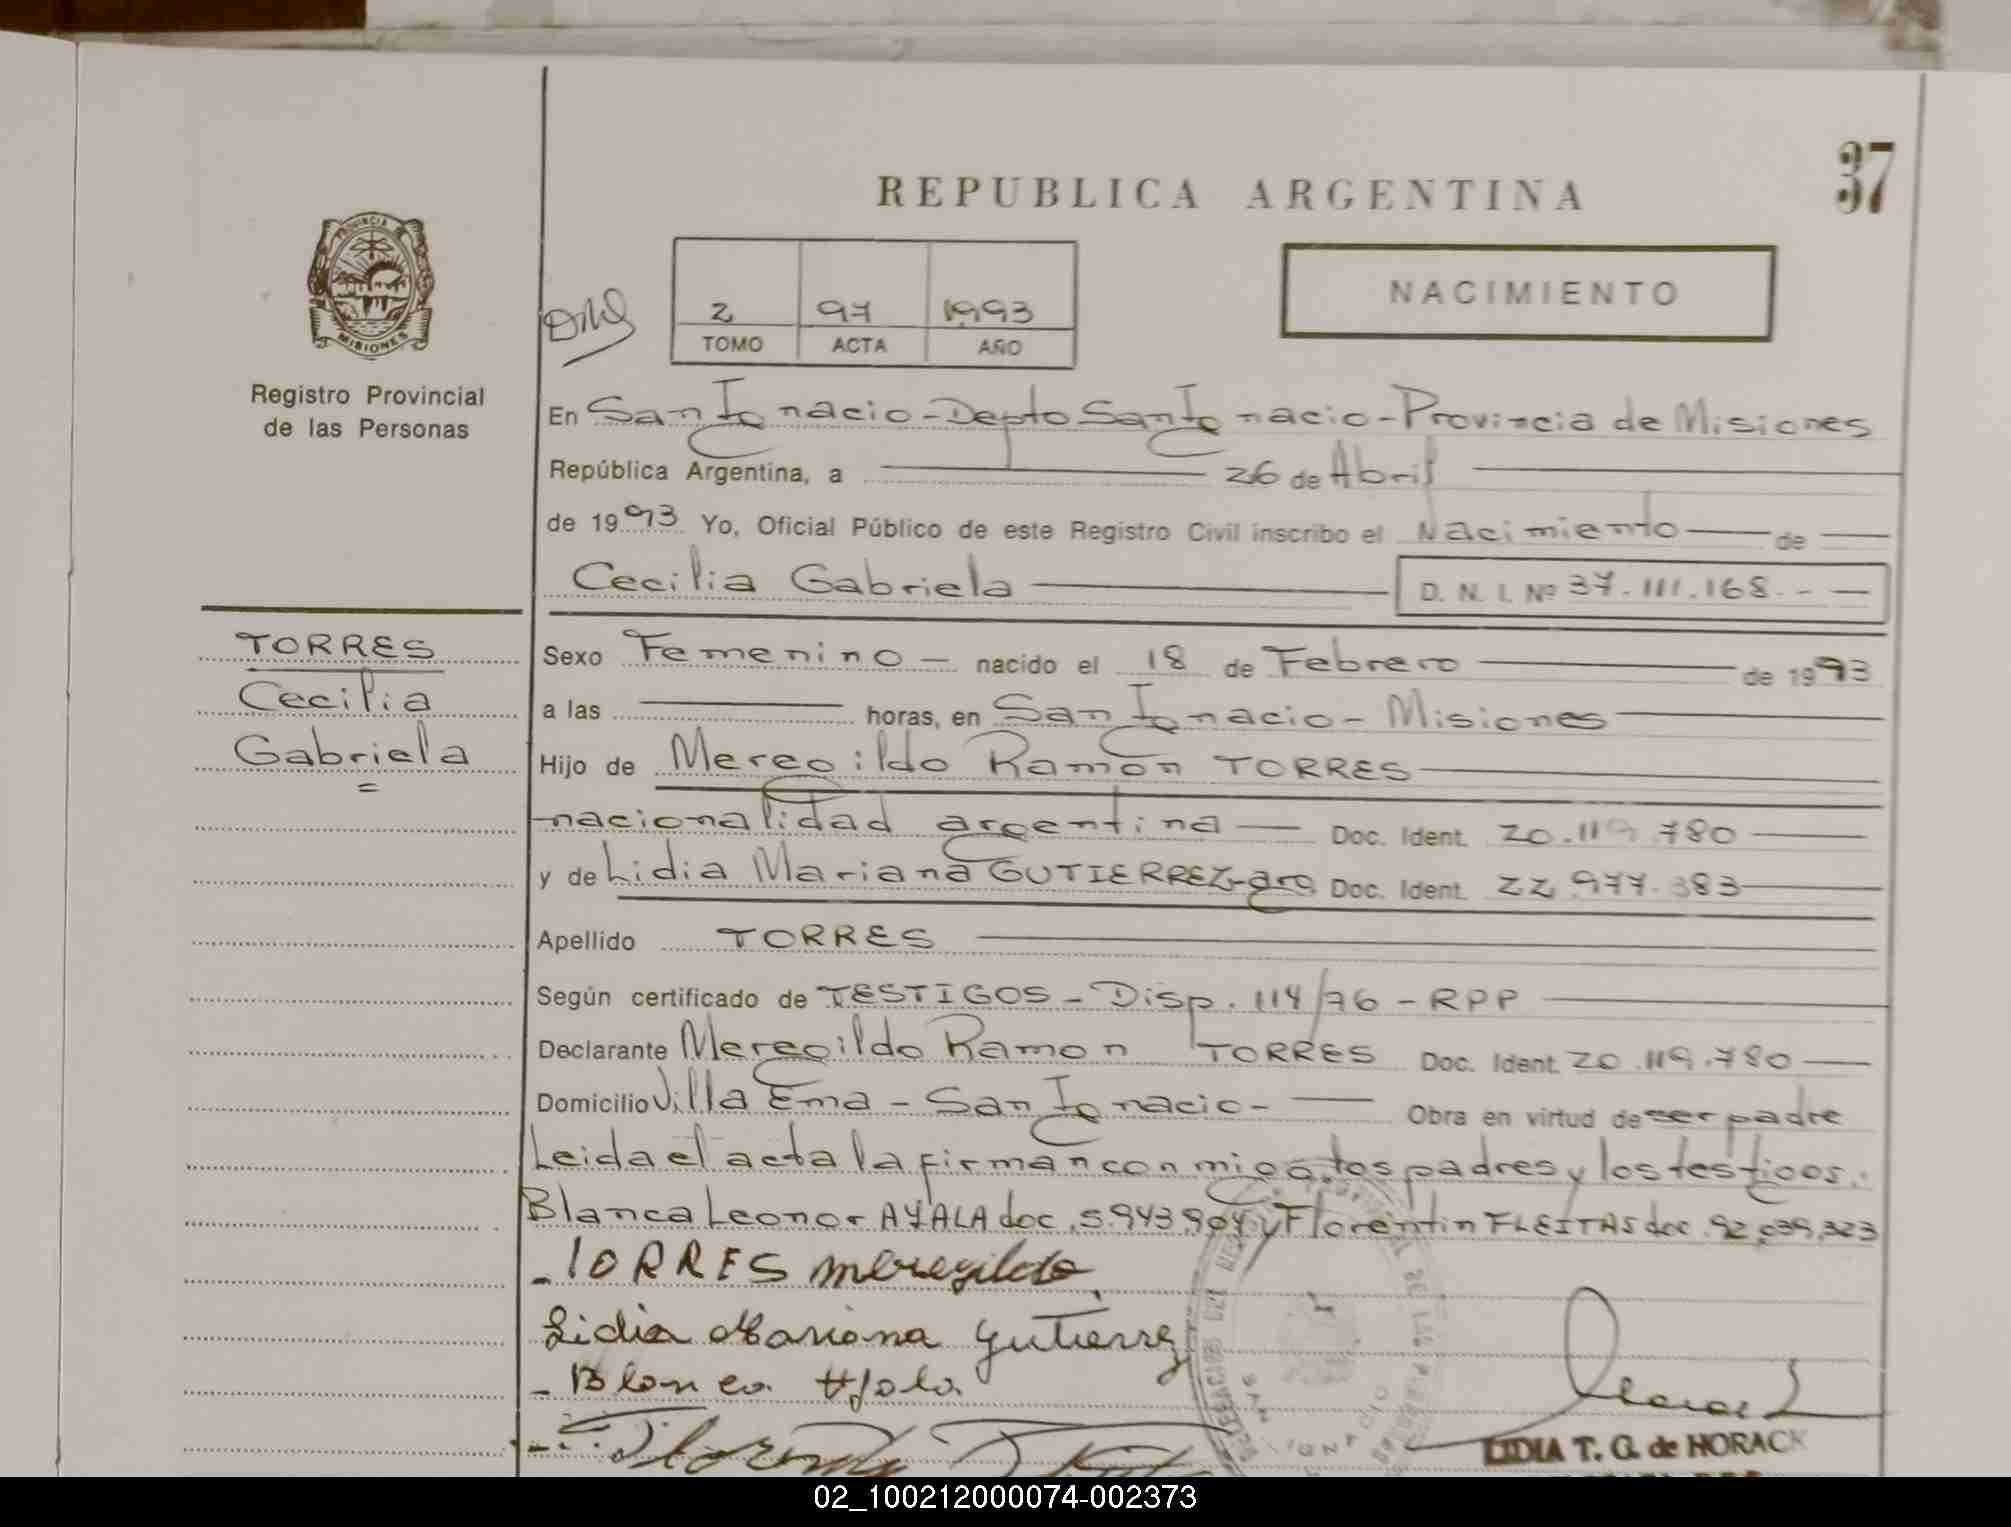 37
REPUBLICA ARGENTINA
PROVINCIA
MISIONES
Registro Provincial
de las Personas
2 97 1993
TOMO ACTA AÑO
NACIMIENTO
En San Ignacio - Depto San Ignacio - Provincia de Misiones
República Argentina, a 26 de Abril
de 1993 Yo, Oficial Público de este Registro Civil inscribo el Nacimiento de
Cecilia Gabriela D. N. I. Nº 37.111.168.-
TORRES
Cecilia
Gabriela
Sexo Femenino - nacido el 18 de Febrero de 1993
a las horas, en San Ignacio - Misiones
Hijo de Meregildo Ramón TORRES
nacionalidad argentina Doc. Ident. 20.119.780
y de Lidia Mariana GUTIERREZ-arg. Doc. Ident. 22.977.383
Apellido TORRES
Según certificado de TESTIGOS - Disp. 114/76 - RPP
Declarante Meregildo Ramon TORRES Doc. Ident. 20.119.780
Domicilio Villa Ema - San Ignacio - Obra en virtud de ser padre
Leida el acta la firman conmigo, los padres y los testigos.
Blanca Leonor AYALA doc. 5.943.904 y Florentin FLEITAS doc. 92.039.323
- TORRES meregildo
Lidia Mariana Gutierrez
- Blanca Ayala
LIDIA T. G. de HORACK
02_100212000074-002373